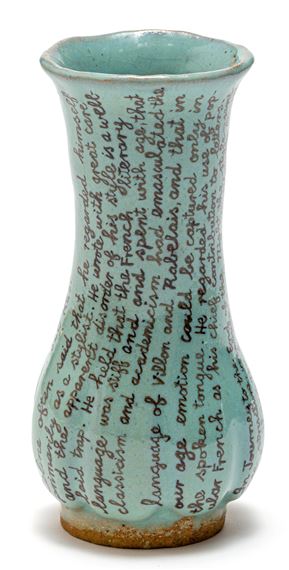 often said that he regarded himself
as a stylist. He wrote with great care
and the apparent disorder of his style is a well
laid trap. He held that the French literary
language was stiff and and spent with age that
classicism and academicism had emasculated the
language of Villon and Rabelais, and that in
our age emotion could be captured only in
the spoken tongue. He regarded his use of pop
ular French as his chief contribution to